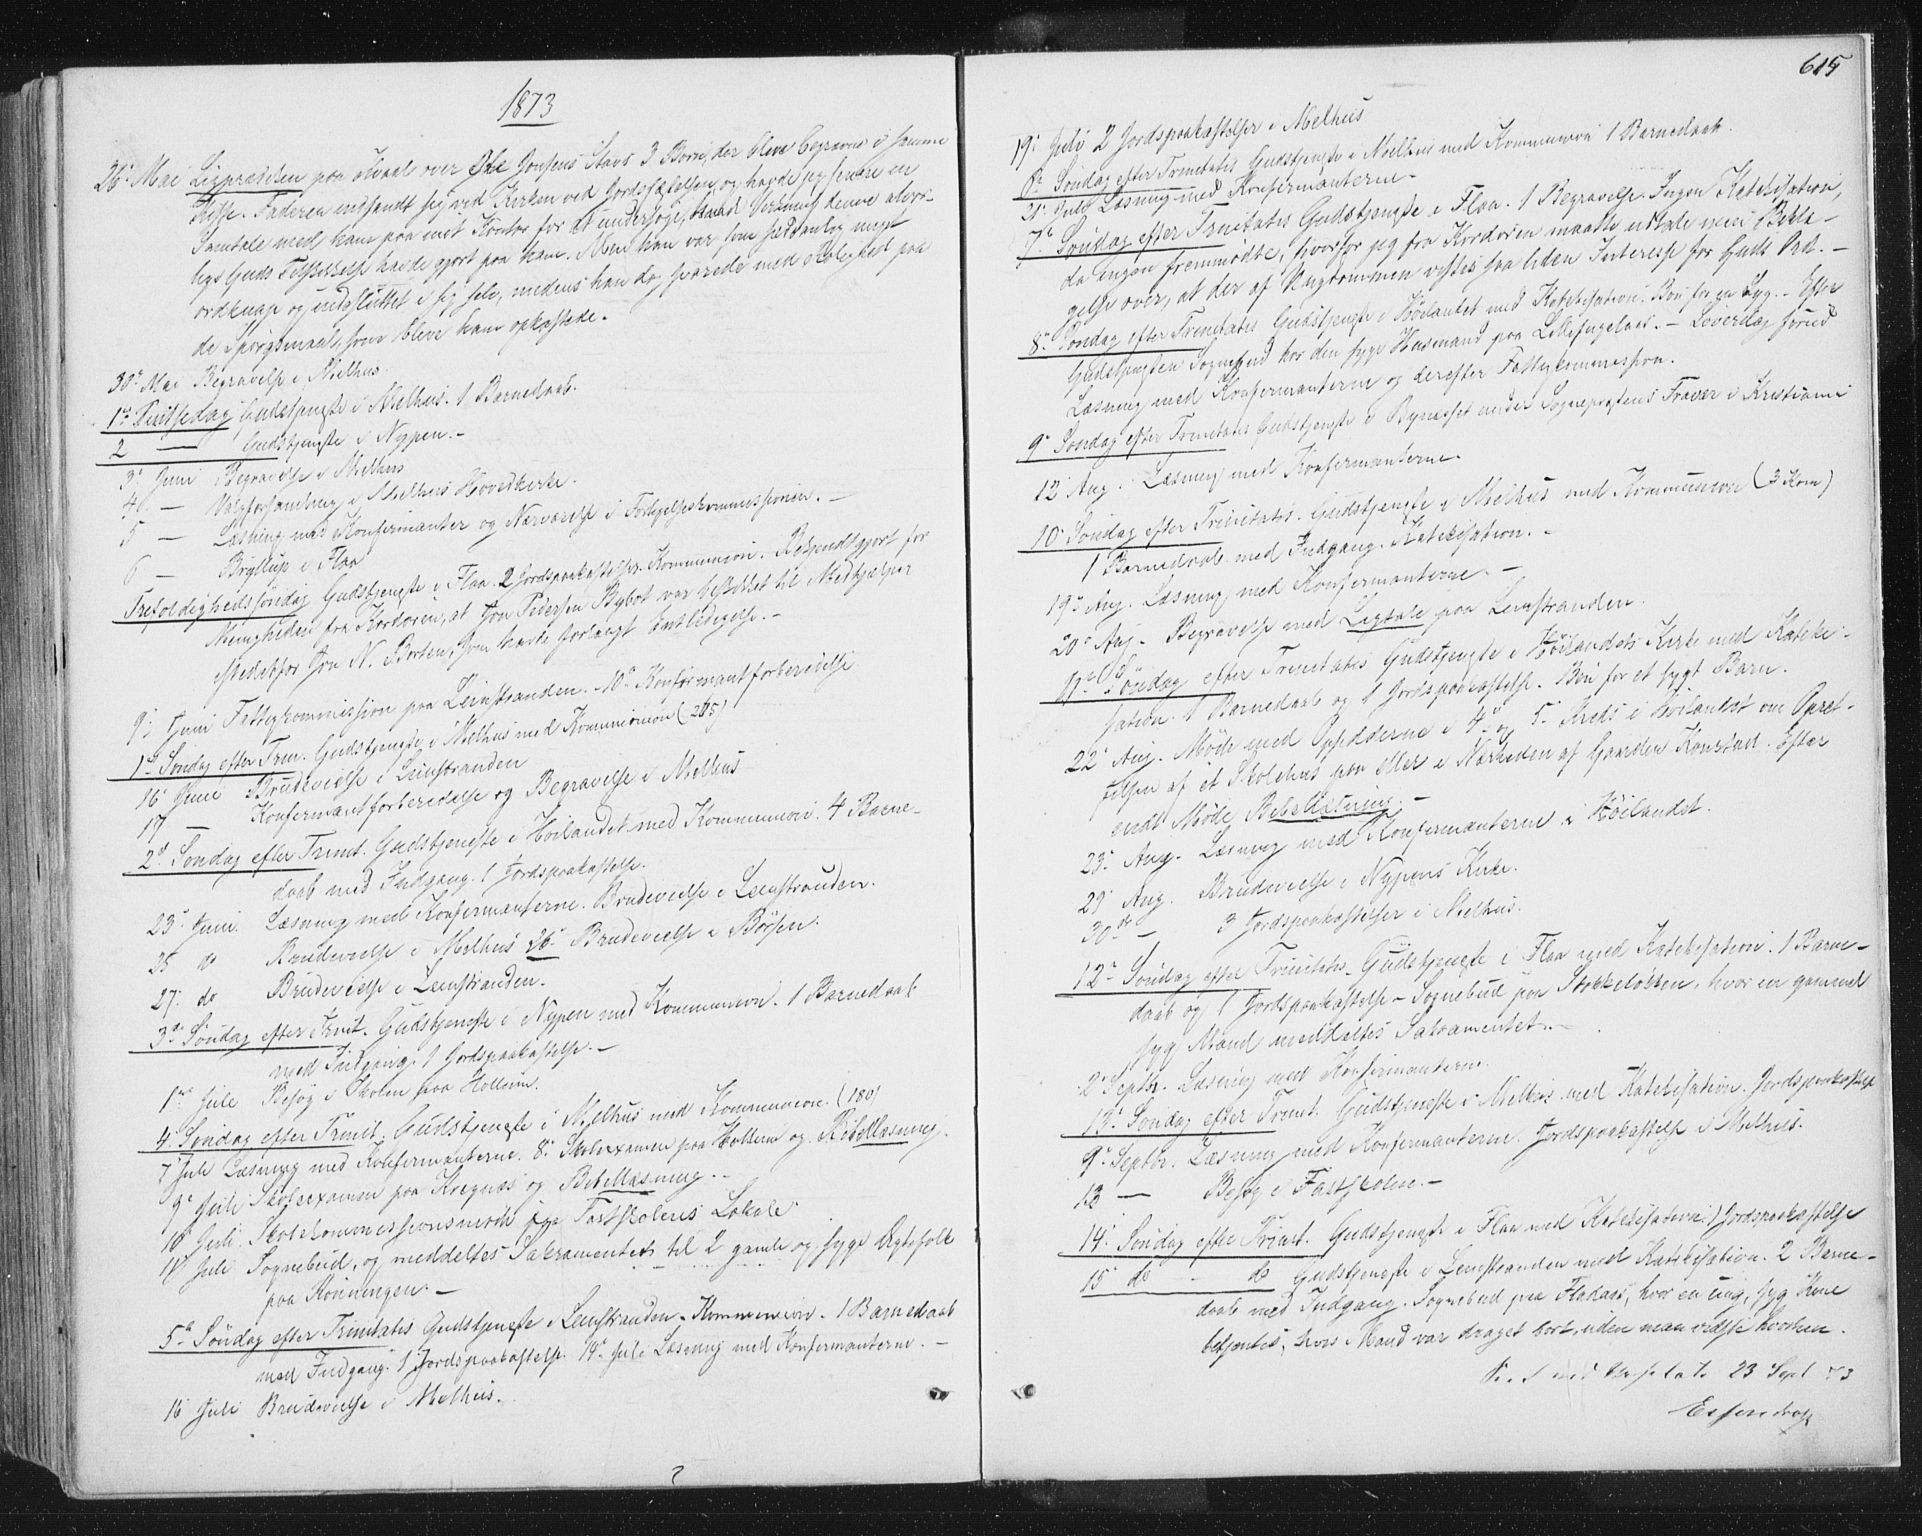 1873
26. Mai Ligprædiken paa Hvaal over Ole Jonsens Stavs 3 Børn, der bleve begravne i samme
Kiste. Faderen indfandt sig ved Kirken ved Jordfæstelsen, og havde jeg senere en
Samtale med ham paa mit Kontor for at undersøge, hvad Virkning denne alvor-
lige Guds Tilskikkelse havde gjort paa ham. Men han var som sædvanlig meget
ordknap og indsluttet i sig selv, medens han dog svarede med Rolighed paa
de Spørgsmaal, som bleve ham opkastede.
30te Mai Begravelse i Melhus.
1ste Pintsedag Gudstjeneste i Melhus. 1 Barnedaab.
2 — Gudstjeneste i Nypen. -
3. Juni Begravelse i Melhus
4 — Valgforsamling i Melhus Hovedkirke.
5 — Læsning med Konfirmanter og Nærværelse i Forligelseskommissionen. —
6 — Bryllup i Flaa
Trefoldighedssøndag Gudstjeneste i Flaa. 2 Jordspaakastelser. Kommunion. Bekjendtgjort for
Menigheden fra Kordøren, at Jon Pedersen Bybot var beskikket til Medhjælper
istedetfor Jon N. Borten, som havde forlangt Entledigelse. -
9. Juni Fattigkommission paa Leinstranden. - 10. Konfirmantforberedelse
1ste Søndag efter Trin. Gudstjeneste i Melhus med Kommunion (205)
16 Juni Brudevielse i Leinstranden
17 — Konfirmantforberedelse og Begravelse i Melhus
2d Søndag efter Trinit. Gudstjeneste i Høilandet med Kommunion. 4 Barne-
daab med Indgang. 1 Jordspaakastelse.
23. Juni. Læsning med Konfirmanterne. Brudevielse i Leinstranden.
25 do Brudevielse i Melhus 26. Brudevielse i Børsen.
27. do Brudevielse i Leinstranden.
3die Søndag efter Trinit. Gudstjeneste i Nypen med Kommunion. 1 Barnedaab
med Indgang. 1 Jordspaakastelse. —
1ste Juli Besøg i Skolen paa Hollum.
4. Søndag efter Trinit. Gudstjeneste i Melhus med Kommunion. (180)
7 Juli Læsning med Konfirmanterne. 8. Skoleexamen paa Hollum og Bibellæsning.
9. Juli Skoleexamen paa Kregnæs og Bibellæsning. -
10 Juli. Skolekommissionsmøde paa Fastskolens Lokale.
11 Juli Sognebud, og meddeltes Sakramentet til 2 gamle og syge Ægtefolk
paa Rønningen. —
5te Søndag efter Trinitatis Gudstjeneste i Leinstranden. Kommunion. 1 Barnedaab
med Indgang. 1 Jordspaakastelse. 14. Juli Læsning med Konfirmanterne. —
16 Juli Brudevielse i Melhus.
615
19. Juli 2 Jordspaakastelser i Melhus
6te Søndag efter Trinitatis Gudstjeneste i Melhus med Kommunion 1 Barnedaab.
21. Juli Læsning med Konfirmanterne -
7de Søndag efter Trinitatis Gudstjeneste i Flaa. 1 Begravelse. Ingen Katekisation,
da ingen fremmødte, hvorfor jeg fra Kordøren maatte udtale min Bekla-
gelse over, at der af Ungdommen vistes saa liden Interesse for Guds Ord. —
8. Søndag efter Trinitatis Gudstjeneste i Høilandet med Katekisation. Bøn for en Syg. - Efter
Gudstjenesten Sognebud hos den syge Husmand paa - Løverdag forud
Læsning med Konfirmanterne og derefter Fattigkommission.
9. Søndag efter Trinitatis Gudstjeneste i Bynesset under Sogneprestens Fravær i Kristiania
12 Aug. Læsning med Konfirmanterne.
10. Søndag efter Trinitatis. Gudstjeneste i Melhus med Kommunion (3 Kom)
1 Barnedaab med Indgang. Katekisation. -
19. Aug. Læsning med Konfirmanterne. —
20. Aug. Begravelse med Ligtale paa Leinstranden.
11te Søndag efter Trinitatis Gudstjeneste i Høilandets Kirke med Kateki-
sation. 1 Barnedaab og 1 Jordspaakastelse. Bøn for et sygt Barn.
22 Aug. Møde med Opsidderne i 4. og 5. Kreds i Høilandet om Opret-
telsen af et Skolehus paa eller i Nærheden af Gaarden Konstad. Efter
endt Møde Bibellæsning. —
23. Aug. Læsning med Konfirmanterne i Høilandet.
29 Aug. Brudevielse i Nypens Kirke.
30te — 3 Jordspaakastelser i Melhus.
12. Søndag efter Trinitatis. Gudstjeneste i Flaa med Katekisation. 1 Barne-
daab og 1 Jordspaakastelse - Sognebud paa hvor en gammel
syg Mand meddeltes Sakramentet. -
2. Septbr. Læsning med Konfirmanterne.
13. Søndag efter Trinit. Gudstjeneste i Melhus med Katekisation. Jordspaakastelse
9. Septbr. Læsning med Konfirmanterne. Jordspaakastelse i Melhus.
13 — Besøg i Fastskolen. —
14. Søndag efter Trinit. Gudstjeneste i Flaa med Katekisation. 1 Jordspaakastelse
15 do - do Gudstjeneste i Leinstranden med Katekisation. 2 Barne-
daab med Indgang. Sognebud paa Flaaaas, hvor en ung, syg Kone
betjentes, hvis Mand var draget bort, uden man vidste hvorhen.
23 Sept 73
Essendrop